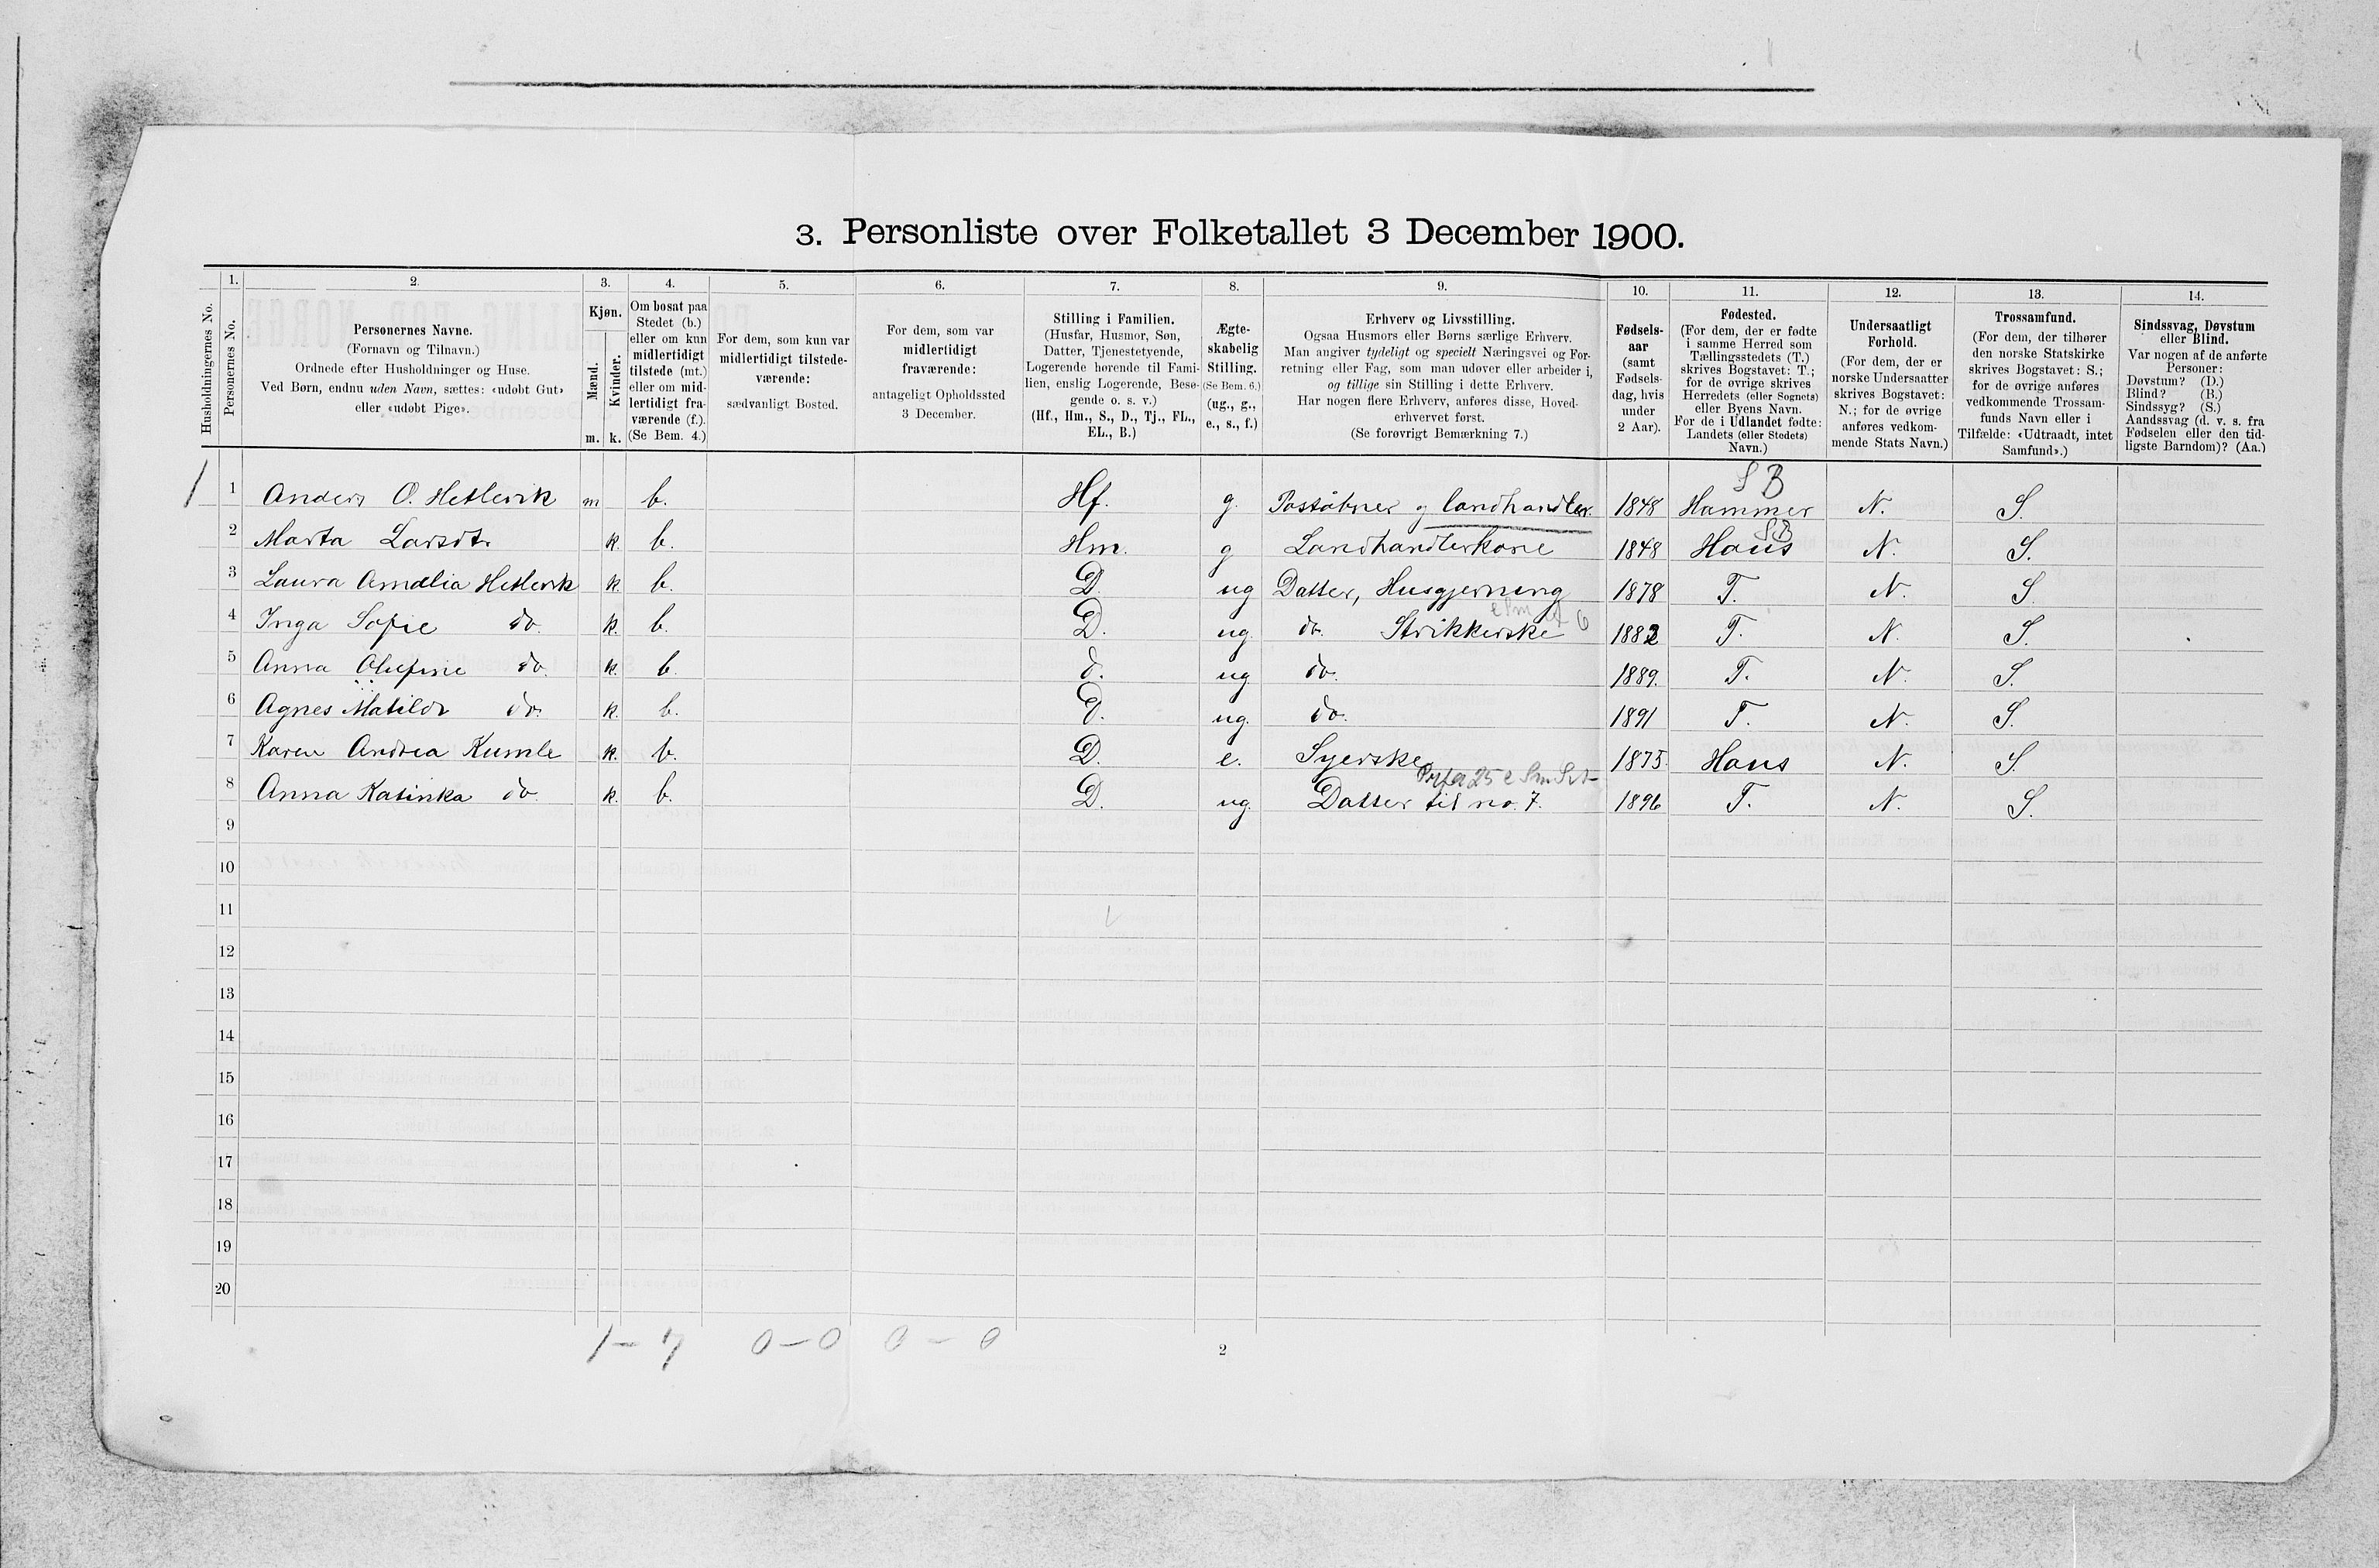 3. Personliste over Folketallet 3 December 1900.
1. 2. 3. 4. 5. 6. 7. 8. 9. 10. 11. 12. 13. 14.
Husholdningernes No.
Personernes No.
Personernes Navne.
(Fornavn og Tilnavn.)
Ordnede efter Husholdninger og Huse.
Ved Børn, endnu uden Navn, sættes: «udøbt Gut»
eller «udøbt Pige».
Kjøn.
Mænd.
Kvinder.
m. k.
Om bosat paa
Stedet (b.)
eller om kun
midlertidigt
tilstede (mt.)
eller om mid-
lertidigt fra-
værende (f.).
(Se Bem. 4.)
For dem, som kun var
midlertidigt tilstede-
værende:
sædvanligt Bosted.
For dem, som var
midlertidigt
fraværende:
antageligt Opholdssted
3 December.
Stilling i Familien.
(Husfar, Husmor, Søn,
Datter, Tjenestetyende,
Logerende hørende til Fami-
lien, enslig Logerende, Besø-
gende o. s. v.)
(Hf., Hm., S., D., Tj., FL.,
EL., B.)
Ægte-
skabelig
Stilling.
(Se Bem. 6.)
(ug., g.,
e., s., f.)
Erhverv og Livsstilling.
Ogsaa Husmors eller Børns særlige Erhverv.
Man angiver tydeligt og specielt Næringsvei og For-
retning eller Fag, som man udøver eller arbeider i,
og tillige sin Stilling i dette Erhverv.
Har nogen flere Erhverv, anføres disse, Hoved-
erhvervet først.
(Se forøvrigt Bemærkning 7.)
Fødsels-
aar
(samt
Fødsels-
dag, hvis
under
2 Aar).
Fødested.
(For dem, der er fødte
i samme Herred som
Tællingsstedets (T.)
skrives Bogstavet: T.;
for de øvrige skrives
Herredets (eller Sognets)
eller Byens Navn.
For de i Udlandet fødte:
Landets (eller Stedets)
Navn.)
Undersaatligt
Forhold.
(For dem, der er
norske Undersaatter
skrives Bogstavet:
N.; for de øvrige
anføres vedkom-
mende Stats Navn.)
Trossamfund.
(For dem, der tilhører
den norske Statskirke
skrives Bogstavet: S.;
for de øvrige anføres
vedkommende Trossam-
funds Navn eller i
Tilfælde: «Udtraadt, intet
Samfund».)
Sindssvag, Døvstum
eller Blind.
Var nogen af de anførte
Personer:
Døvstum? (D.)
Blind? (B.)
Sindssyg? (S.)
Aandssvag (d. v. s. fra
Fødselen eller den tid-
ligste Barndom)? (Aa.)
S B
1 1 Anders O. Hetlevik m b. Hf. g. Postaabner og landhandler. 1848 Hammer N. S.
S B
2 Marta Larsdt. k. b. Hm. g Landhandlerkone 1848 Haus N. S.
3 Laura Amalia Hetlevik k. b. D. ug Datter, Husgjerning 1878 T. N. S.
4 Inga Sofie do. k. b. D. ug. do. Strikkerske 1882 T. N. S.
5 Anna Olufine do. k. b. d. ug. do. 1889. T. N. S.
6 Agnes Matilde do. k. b. D. ug. do. 1891 T. N. S.
7 Karen Andrea Kumle k. b. D. e. Syerske 1875. Haus N. S.
8 Anna Katinka do. k. b. D. ug. Datter til no. 7. 1896 T. N. S.
9
10
11
12
13
14
15
16
17
18
19
20
1 – 7 0 – 0 0 – 0
2